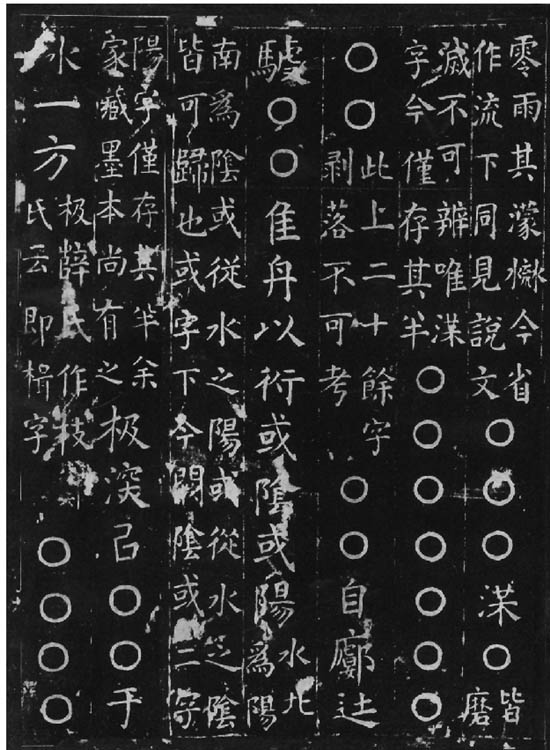 零雨其濛㵗今省
作流下同見說文
○○○渼○
皆
磨
滅不可辨唯渼
字今僅存其半
○○○○○○○
○○
此上二十餘字
剥落不可考
○○自廓辻
驉○○隹舟以衍或陰或陽
水北
爲陽
南爲陰或從水之陽或從水之陰
皆可歸也或字下今闕陰或二字
陽字僅存其半余
家藏墨本尚有之
极深己○○于
水一方
极薛氏作枝
氏云即楫字
○○○○